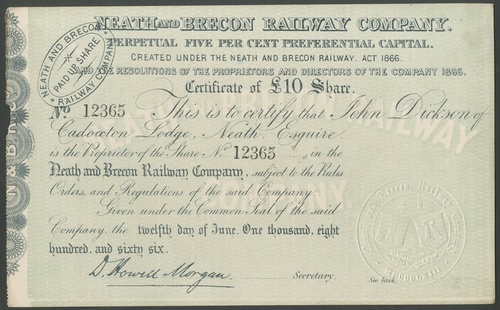 NEATH AND BRECON RAILWAY COMPANY.
PERPETUAL FIVE PER CENT PREFERENTIAL CAPITAL.
CREATED UNDER THE NEATH AND BRECON RAILWAY. ACT 1866.
AND THE RESOLUTIONS OF THE PROPRIETORS AND DIRECTORS OF THE COMPANY 1866.
NEATH AND BRECON
PAID UP SHARE
RAILWAY COMPANY
Certificate of £10 Share.
No. 12365 This is to certify that John Dickson of
Cadoxton Lodge, Neath, Esquire
is the Proprietor of the Share No. 12365 in the
Neath and Brecon Railway Company, subject to the Rules
Orders, and Regulations of the said Company
Given under the Common Seal of the said
Company, the twelfth day of June, One thousand, eight
hundred, and sixty six.
D. Howell Morgan. Secretary.
See back